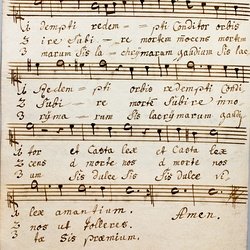 1 dempti redem- - pti Conditor orbis
2 ire Subi- re mortem inocens mortem
3 marum Sis lachrymarum gaudium Sis lac
1 Redem- pti orbis redempti Condi
2 Subi- re mortẽ Subire inno
3 rÿma- rum Sis lacrÿmarum gaudi
1 tor et Casta lex et Casta lex
2 cens d morte nos d morte nos
3 um Sis dulce Sis dulce vi
1 lex amantium. Amen.
2 nos ut tolleres.
3 tæ Sis præmium.